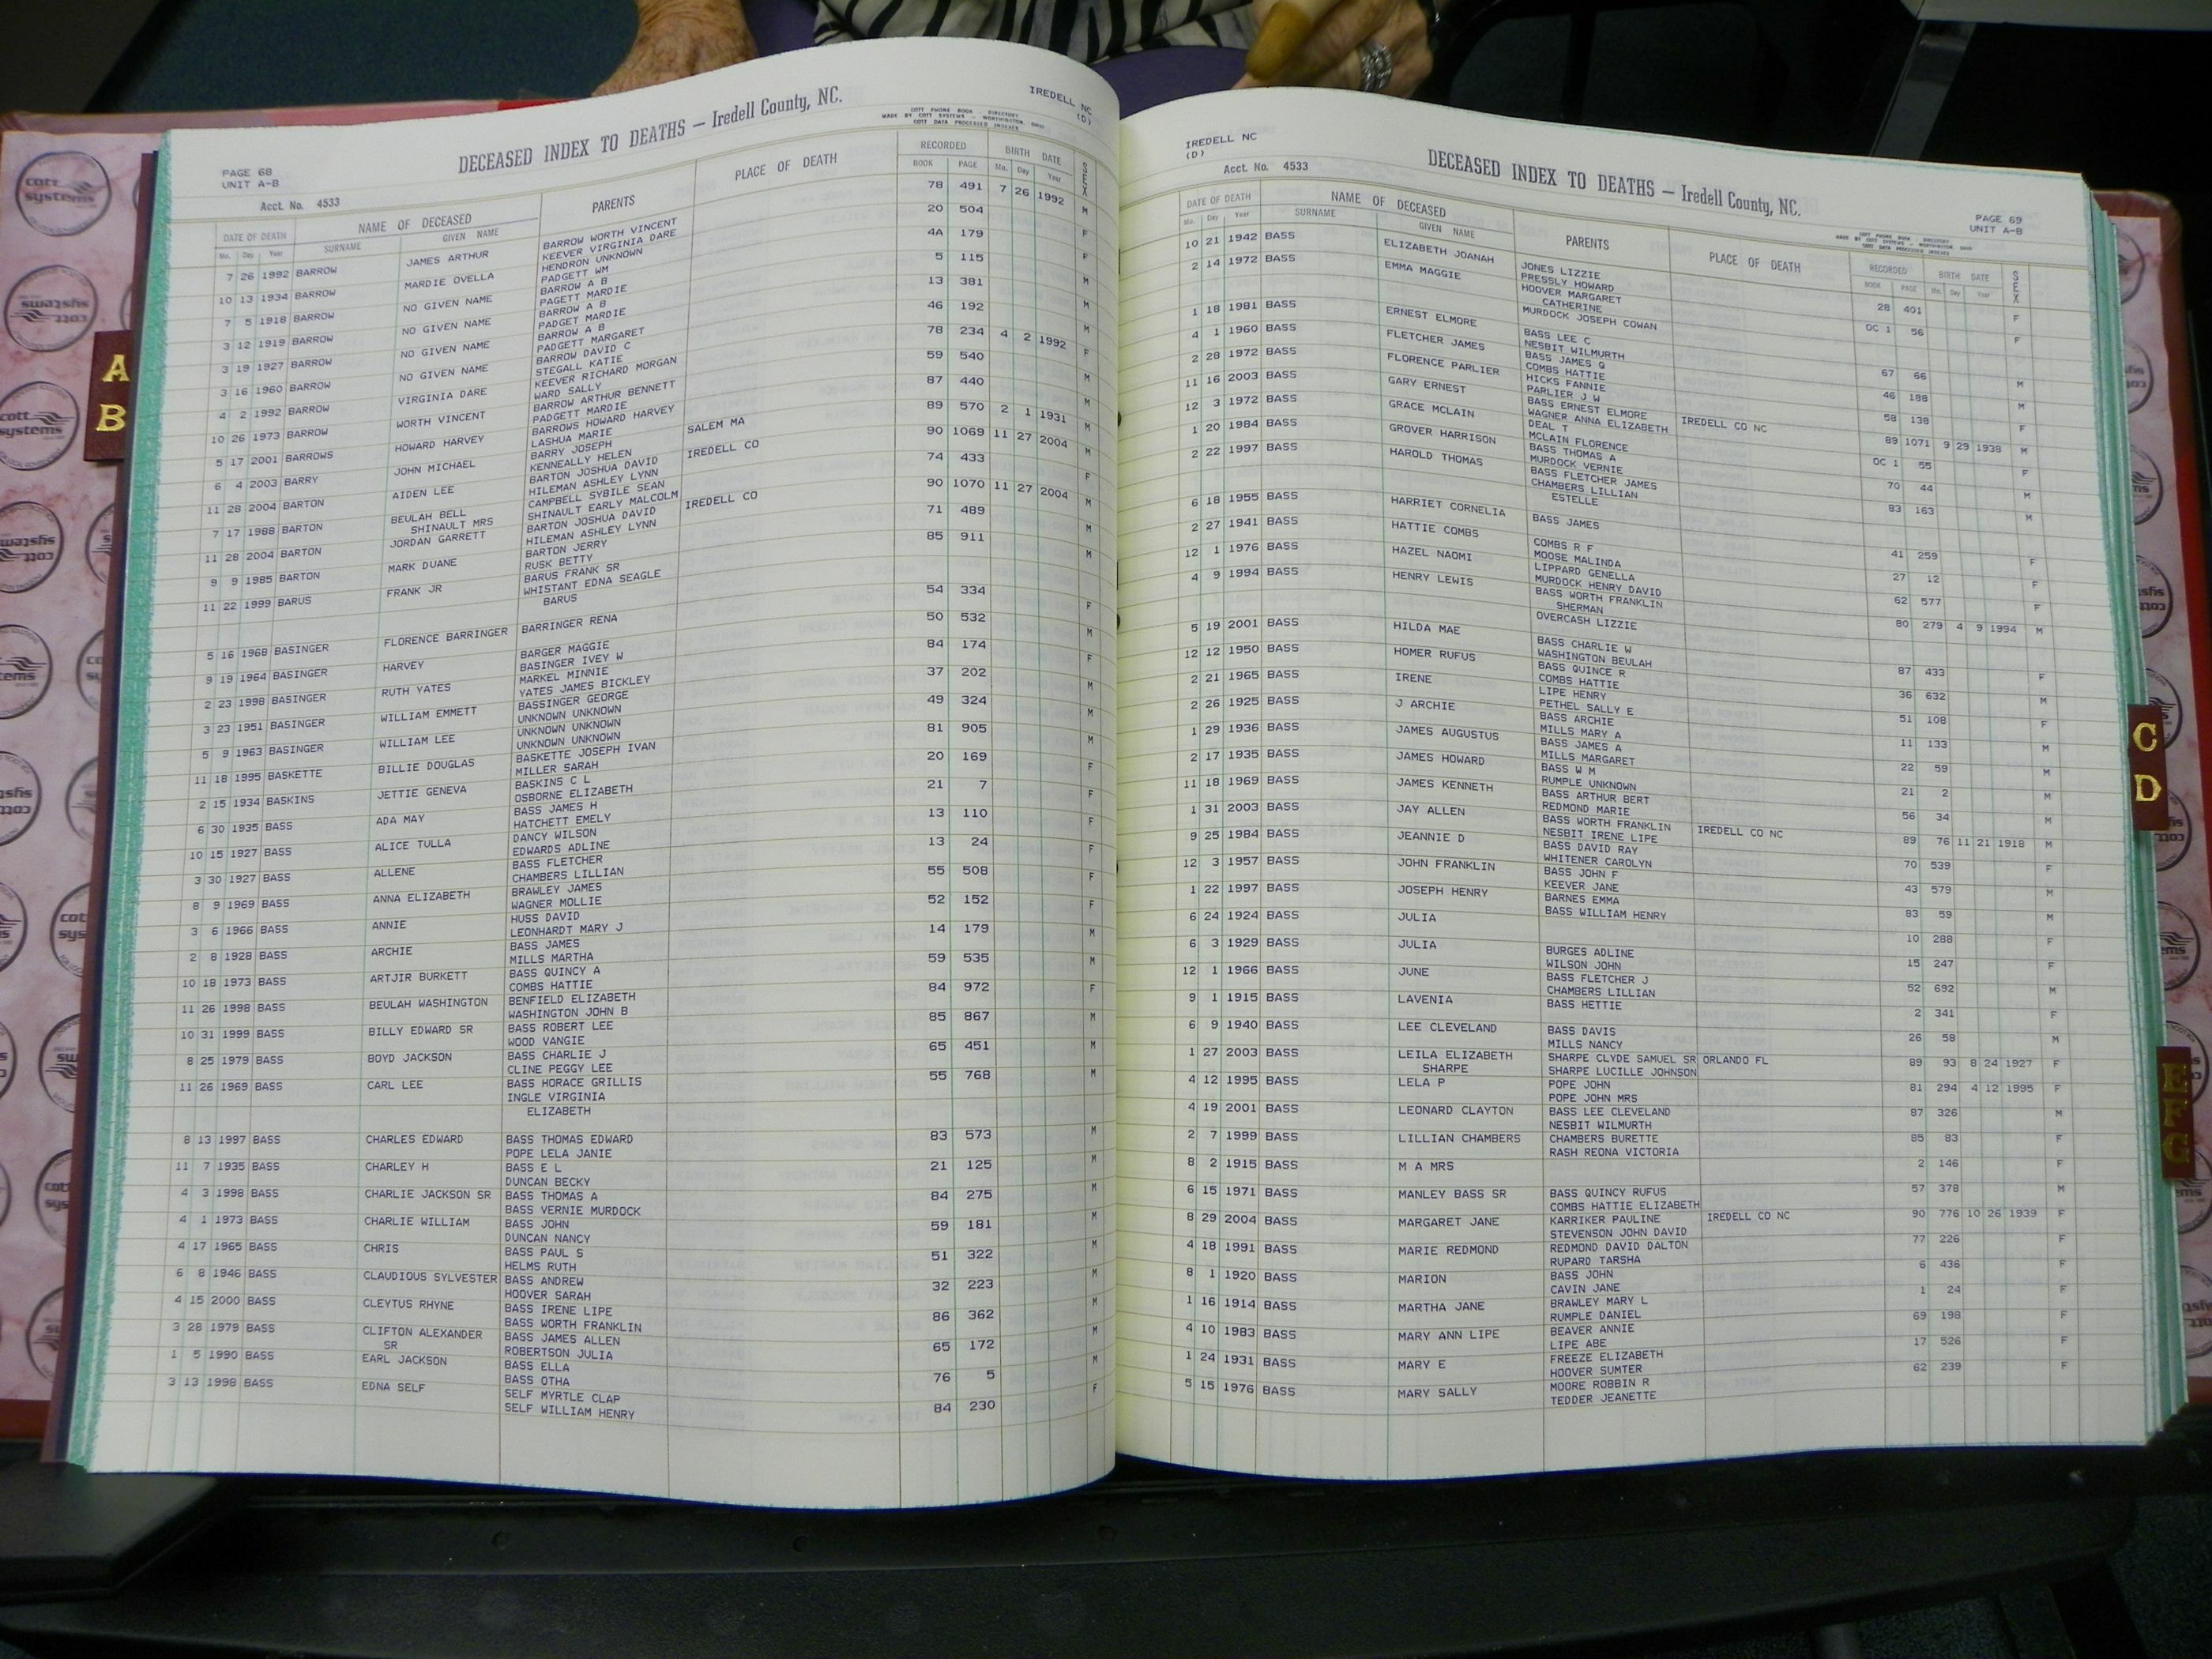 IREDELL NC
(D)
PAGE 68
UNIT A-B
DECEASED INDEX TO DEATHS — Iredell County, NC.
COTT PHONE BOOK DIRECTORY
MADE BY COTT SYSTEMS — WORTHINGTON, OHIO
COTT DATA PROCESSED INDEXES
Acct. No. 4533
DATE OF DEATH NAME OF DECEASED PARENTS PLACE OF DEATH RECORDED BIRTH DATE SEX
Mo. Day Year SURNAME GIVEN NAME BOOK PAGE Mo. Day Year
7 26 1992 BARROW JAMES ARTHUR BARROW WORTH VINCENT 78 491 7 26 1992 M
KEEVER VIRGINIA DARE
10 13 1934 BARROW MARDIE OVELLA HENDRON UNKNOWN 20 504 F
PADGETT WM
7 5 1918 BARROW NO GIVEN NAME BARROW A B 4A 179 F
PAGETT MARDIE
3 12 1919 BARROW NO GIVEN NAME BARROW A B 5 115 M
PADGET MARDIE
3 19 1927 BARROW NO GIVEN NAME BARROW A B 13 381 M
PADGETT MARGARET
3 16 1960 BARROW NO GIVEN NAME BARROW DAVID C 46 192 M
STEGALL KATIE
4 2 1992 BARROW VIRGINIA DARE KEEVER RICHARD MORGAN 78 234 4 2 1992 F
WARD SALLY
10 26 1973 BARROW WORTH VINCENT BARROW ARTHUR BENNETT 59 540 M
PADGETT MARDIE
5 17 2001 BARROWS HOWARD HARVEY BARROWS HOWARD HARVEY 87 440 M
LASHUA MARIE
6 4 2003 BARRY JOHN MICHAEL BARRY JOSEPH SALEM MA 89 570 2 1 1931 M
KENNEALLY HELEN
11 28 2004 BARTON AIDEN LEE BARTON JOSHUA DAVID IREDELL CO 90 1069 11 27 2004 M
HILEMAN ASHLEY LYNN
7 17 1988 BARTON BEULAH BELL CAMPBELL SYBILE SEAN 74 433 F
SHINAULT MRS SHINAULT EARLY MALCOLM
11 28 2004 BARTON JORDAN GARRETT BARTON JOSHUA DAVID IREDELL CO 90 1070 11 27 2004 M
HILEMAN ASHLEY LYNN
9 9 1985 BARTON MARK DUANE BARTON JERRY 71 489 M
RUSK BETTY
11 22 1999 BARUS FRANK JR BARUS FRANK SR 85 911 M
WHISTANT EDNA SEAGLE
BARUS
5 16 1968 BASINGER FLORENCE BARRINGER BARRINGER RENA 54 334 F
9 19 1964 BASINGER HARVEY BARGER MAGGIE 50 532 M
BASINGER IVEY W
2 23 1998 BASINGER RUTH YATES MARKEL MINNIE 84 174 F
YATES JAMES BICKLEY
3 23 1951 BASINGER WILLIAM EMMETT BASSINGER GEORGE 37 202 M
UNKNOWN UNKNOWN
5 9 1963 BASINGER WILLIAM LEE UNKNOWN UNKNOWN 49 324 M
UNKNOWN UNKNOWN
11 18 1995 BASKETTE BILLIE DOUGLAS BASKETTE JOSEPH IVAN 81 905 M
MILLER SARAH
2 15 1934 BASKINS JETTIE GENEVA BASKINS C L 20 169 F
OSBORNE ELIZABETH
6 30 1935 BASS ADA MAY BASS JAMES H 21 7 F
HATCHETT EMELY
10 15 1927 BASS ALICE TULLA DANCY WILSON 13 110 F
EDWARDS ADLINE
3 30 1927 BASS ALLENE BASS FLETCHER 13 24 F
CHAMBERS LILLIAN
8 9 1969 BASS ANNA ELIZABETH BRAWLEY JAMES 55 508 F
WAGNER MOLLIE
3 6 1966 BASS ANNIE HUSS DAVID 52 152 F
LEONHARDT MARY J
2 8 1928 BASS ARCHIE BASS JAMES 14 179 M
MILLS MARTHA
10 18 1973 BASS ARTJIR BURKETT BASS QUINCY A 59 535 M
COMBS HATTIE
11 26 1998 BASS BEULAH WASHINGTON BENFIELD ELIZABETH 84 972 F
WASHINGTON JOHN B
10 31 1999 BASS BILLY EDWARD SR BASS ROBERT LEE 85 867 M
WOOD VANGIE
8 25 1979 BASS BOYD JACKSON BASS CHARLIE J 65 451 M
CLINE PEGGY LEE
11 26 1969 BASS CARL LEE BASS HORACE GRILLIS 55 768 M
INGLE VIRGINIA
ELIZABETH
8 13 1997 BASS CHARLES EDWARD BASS THOMAS EDWARD 83 573 M
POPE LELA JANIE
11 7 1935 BASS CHARLEY H BASS E L 21 125 M
DUNCAN BECKY
4 3 1998 BASS CHARLIE JACKSON SR BASS THOMAS A 84 275 M
BASS VERNIE MURDOCK
4 1 1973 BASS CHARLIE WILLIAM BASS JOHN 59 181 M
DUNCAN NANCY
4 17 1965 BASS CHRIS BASS PAUL S 51 322 M
HELMS RUTH
6 8 1946 BASS CLAUDIOUS SYLVESTER BASS ANDREW 32 223 M
HOOVER SARAH
4 15 2000 BASS CLEYTUS RHYNE BASS IRENE LIPE 86 362 M
BASS WORTH FRANKLIN
3 28 1979 BASS CLIFTON ALEXANDER BASS JAMES ALLEN 65 172 M
SR ROBERTSON JULIA
1 5 1990 BASS EARL JACKSON BASS ELLA 76 5 M
BASS OTHA
3 13 1998 BASS EDNA SELF SELF MYRTLE CLAP 84 230 F
SELF WILLIAM HENRY
IREDELL NC
(D)
Acct. No. 4533
DECEASED INDEX TO DEATHS — Iredell County, NC.
PAGE 69
UNIT A-B
DATE OF DEATH NAME OF DECEASED PARENTS PLACE OF DEATH RECORDED BIRTH DATE SEX
Mo. Day Year SURNAME GIVEN NAME BOOK PAGE Mo. Day Year
10 21 1942 BASS ELIZABETH JOANAH JONES LIZZIE 28 401 F
PRESSLY HOWARD
2 14 1972 BASS EMMA MAGGIE HOOVER MARGARET OC 1 56 F
CATHERINE
MURDOCK JOSEPH COWAN
1 18 1981 BASS ERNEST ELMORE BASS LEE C 67 66 M
NESBIT WILMURTH
4 1 1960 BASS FLETCHER JAMES BASS JAMES Q 46 188 M
COMBS HATTIE
2 28 1972 BASS FLORENCE PARLIER HICKS FANNIE 58 138 F
PARLIER J W
11 16 2003 BASS GARY ERNEST BASS ERNEST ELMORE IREDELL CO NC 89 1071 9 29 1938 M
WAGNER ANNA ELIZABETH
12 3 1972 BASS GRACE MCLAIN DEAL T OC 1 55 F
MCLAIN FLORENCE
1 20 1984 BASS GROVER HARRISON BASS THOMAS A 70 44 M
MURDOCK VERNIE
2 22 1997 BASS HAROLD THOMAS BASS FLETCHER JAMES 83 163 M
CHAMBERS LILLIAN
ESTELLE
6 18 1955 BASS HARRIET CORNELIA BASS JAMES 41 259 F
2 27 1941 BASS HATTIE COMBS COMBS R F 27 12 F
MOOSE MALINDA
12 1 1976 BASS HAZEL NAOMI LIPPARD GENELLA 62 577 F
MURDOCK HENRY DAVID
4 9 1994 BASS HENRY LEWIS BASS WORTH FRANKLIN 80 279 4 9 1994 M
SHERMAN
OVERCASH LIZZIE
5 19 2001 BASS HILDA MAE BASS CHARLIE W 87 433 F
WASHINGTON BEULAH
12 12 1950 BASS HOMER RUFUS BASS QUINCE R 36 632 M
COMBS HATTIE
2 21 1965 BASS IRENE LIPE HENRY 51 108 F
PETHEL SALLY E
2 26 1925 BASS J ARCHIE BASS ARCHIE 11 133 M
MILLS MARY A
1 29 1936 BASS JAMES AUGUSTUS BASS JAMES A 22 59 M
MILLS MARGARET
2 17 1935 BASS JAMES HOWARD BASS W M 21 2 M
RUMPLE UNKNOWN
11 18 1969 BASS JAMES KENNETH BASS ARTHUR BERT 56 34 M
REDMOND MARIE
1 31 2003 BASS JAY ALLEN BASS WORTH FRANKLIN IREDELL CO NC 89 76 11 21 1918 M
NESBIT IRENE LIPE
9 25 1984 BASS JEANNIE D BASS DAVID RAY 70 539 F
WHITENER CAROLYN
12 3 1957 BASS JOHN FRANKLIN BASS JOHN F 43 579 M
KEEVER JANE
1 22 1997 BASS JOSEPH HENRY BARNES EMMA 83 59 M
BASS WILLIAM HENRY
6 24 1924 BASS JULIA 10 288 F
6 3 1929 BASS JULIA BURGES ADLINE 15 247 F
WILSON JOHN
12 1 1966 BASS JUNE BASS FLETCHER J 52 692 M
CHAMBERS LILLIAN
9 1 1915 BASS LAVENIA BASS HETTIE 2 341 F
6 9 1940 BASS LEE CLEVELAND BASS DAVIS 26 58 M
MILLS NANCY
1 27 2003 BASS LEILA ELIZABETH SHARPE CLYDE SAMUEL SR ORLANDO FL 89 93 8 24 1927 F
SHARPE SHARPE LUCILLE JOHNSON
4 12 1995 BASS LELA P POPE JOHN 81 294 4 12 1995 F
POPE JOHN MRS
4 19 2001 BASS LEONARD CLAYTON BASS LEE CLEVELAND 87 326 M
NESBIT WILMURTH
2 7 1999 BASS LILLIAN CHAMBERS CHAMBERS BURETTE 85 83 F
RASH REONA VICTORIA
8 2 1915 BASS M A MRS 2 146 F
6 15 1971 BASS MANLEY BASS SR BASS QUINCY RUFUS 57 378 M
COMBS HATTIE ELIZABETH
8 29 2004 BASS MARGARET JANE KARRIKER PAULINE IREDELL CO NC 90 776 10 26 1939 F
STEVENSON JOHN DAVID
4 18 1991 BASS MARIE REDMOND REDMOND DAVID DALTON 77 226 F
RUPARD TARSHA
8 1 1920 BASS MARION BASS JOHN 6 436 F
CAVIN JANE
1 16 1914 BASS MARTHA JANE BRAWLEY MARY L 1 24 F
RUMPLE DANIEL
4 10 1983 BASS MARY ANN LIPE BEAVER ANNIE 69 198 F
LIPE ABE
1 24 1931 BASS MARY E FREEZE ELIZABETH 17 526 F
HOOVER SUMTER
5 15 1976 BASS MARY SALLY MOORE ROBBIN R 62 239 F
TEDDER JEANETTE
A
B
C
D
E
F
G
cott
systems